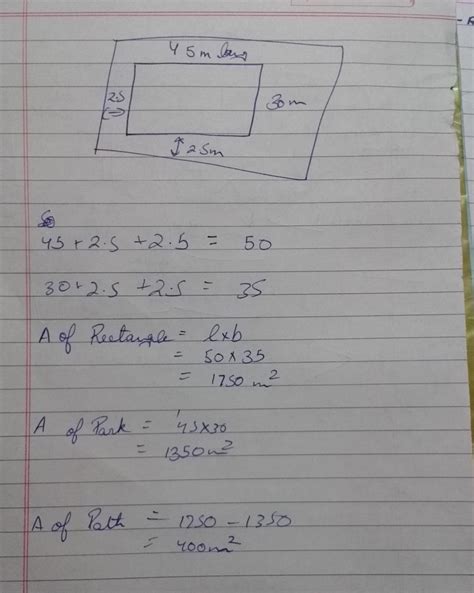 45m long
2.5
30m
2.5m
45 + 2.5 + 2.5 = 50
30 + 2.5 + 2.5 = 35
A of Rectangle = l×b
= 50×35
= 1750 m²
A of Park = 45×30
= 1350m²
A of Path = 1750 - 1350
= 400m²